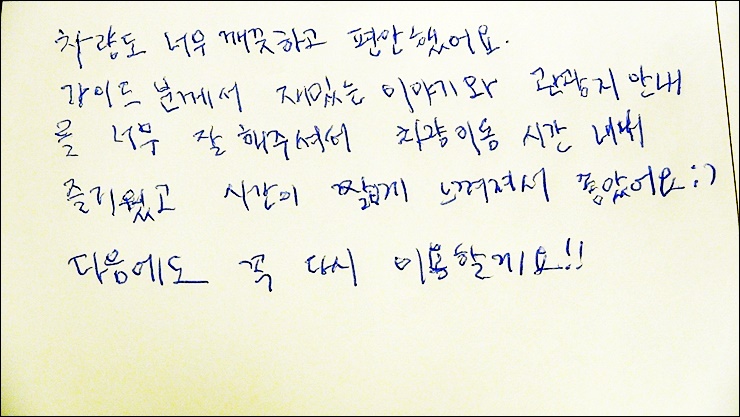 차량도 너무 깨끗하고 편안했어요.
가이드 분께서 재밌는 이야기와 관광지 안내
를 너무 잘 해주셔서 차량이동 시간 내내
즐거웠고 시간이 짧게 느껴져서 좋았어요:)
다음에도 꼭 다시 이용할게요!!